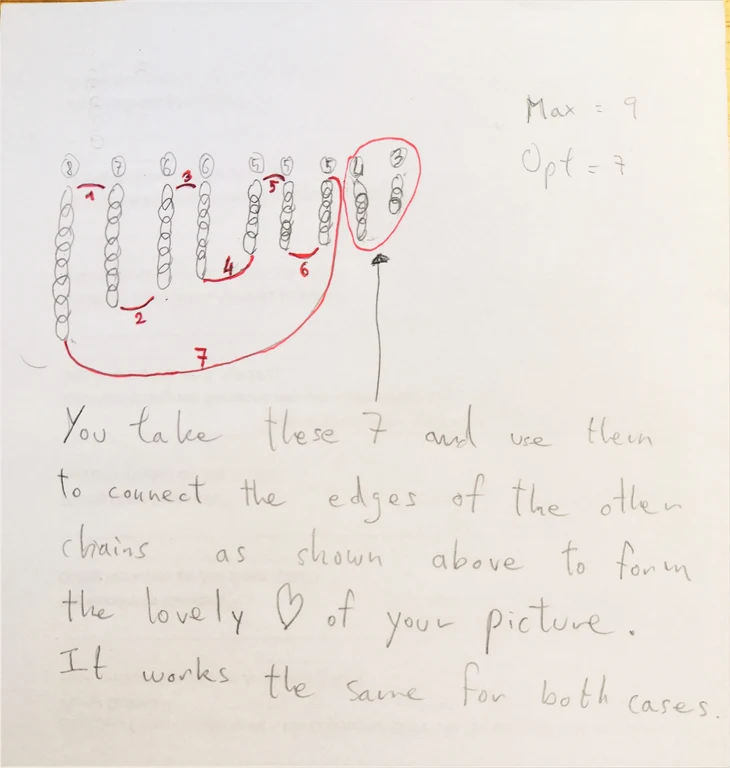 Max = 9
Opt = 7
8 7 6 6 5 5 5 4 3
1 3 5
2 4 6
7
You take these 7 and use them
to connect the edges of the other
chains as shown above to form
the lovely ♡ of your picture.
It works the same for both cases.